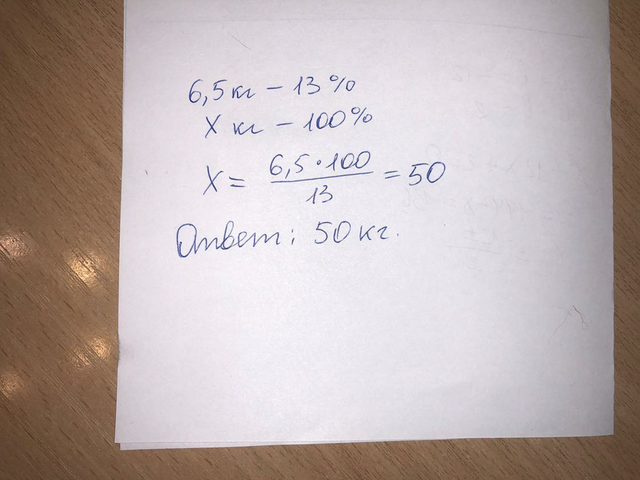 6,5 кг – 13%
X кг – 100%
X = 6,5 · 100 / 13 = 50
Ответ: 50 кг.